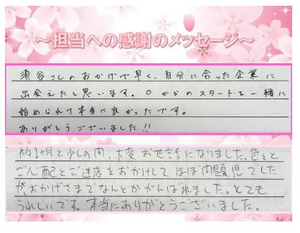 ～担当への感謝のメッセージ～
須谷さんのおかげで早く、自分に合った企業に
出会えたと思います。0からのスタートを一緒に
始められて本当に良かったです。
ありがとうございました!!
約1ヶ月と少しの間、大変お世話になりました。色々と
ご心配とご迷惑をおかけして
がおかげさまでなんとかがんばれました。とても
うれしいです。本当にありがとうございました。